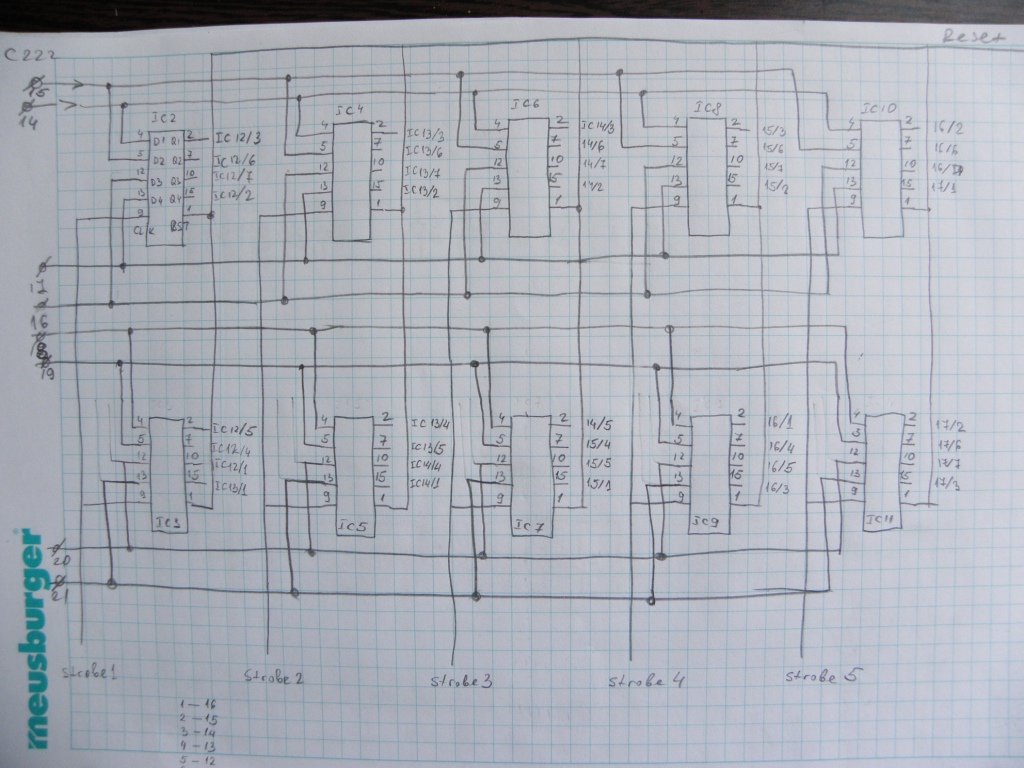 Reset
C222
15
14
IC2
IC4
IC6
IC8
IC10
4 D1 Q1 2 IC12/3
5 D2 Q2 7 IC12/6
12 D3 Q3 10 IC12/7
13 D4 Q4 15 IC12/2
9 CLK RST 1
4 2 IC13/3
5 7 IC13/6
12 10 IC13/7
13 15 IC13/2
9 1
4 2 IC14/3
5 7 14/6
12 10 14/7
13 15 14/2
9 1
4 2 15/3
5 7 15/6
12 10 15/7
13 15 15/2
9 1
4 2 16/2
5 7 16/6
12 10
13 15 17/1
9 1
16
19
4 2 IC12/5
5 7 IC12/4
12 10 IC12/1
13 15 IC13/1
9 1
IC3
4 2 IC13/4
5 7 IC13/5
12 10 IC14/4
13 15 IC14/1
9 1
IC5
4 2 14/5
5 7 15/4
12 10 15/5
13 15 15/1
9 1
IC7
4 2 16/1
5 7 16/4
12 10 16/5
13 15 16/3
9 1
IC9
4 2 17/2
5 7 17/6
12 10 17/7
13 15 17/3
9 1
IC11
20
21
strobe1
strobe2
strobe3
strobe 4
strobe 5
1 – 16
2 – 15
3 – 14
4 – 13
5 – 12
meusburger